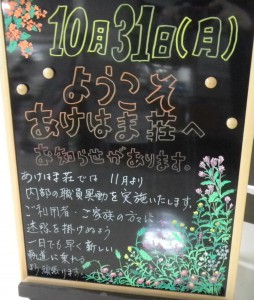 10月31日(月)
ようこそ
あけはま荘へ
お知らせがあります。
あけはま荘では 11月より
内部の職員異動を実施いたします。
ご利用者・ご家族の方には
迷惑を掛けぬよう
一日でも早く新しい
軌道に乗れる
よう頑張ります。